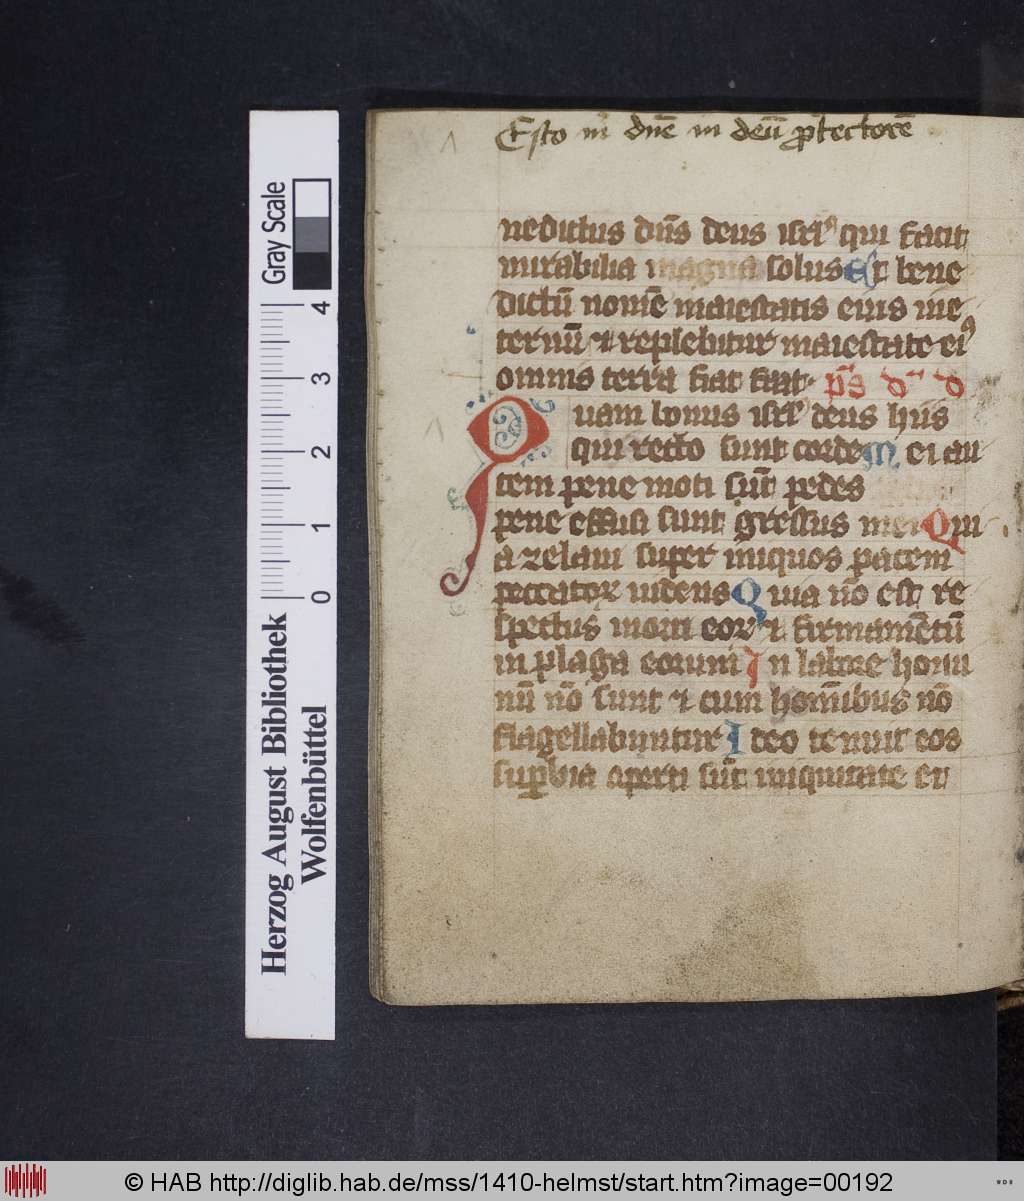 Esto m̄ dn̄e in deū ꝓtectorē
nedictus dn̄s deus isrl' qui facit
mirabilia magna solus Et bene
dictū nomē maiestatis eius in e
ternū ⁊ replebitur maiestate eiꝰ
omnis terra fiat fiat ps̄ d d
Quam bonus isrl' deus hijs
qui recto sunt corde Mei au
tem pene moti sūt pedes
pene effusi sunt gressus mei Qui
a zelaui super iniquos pacem
peccatorꝝ uidens Quia nō est re
spectus morti eorꝝ ⁊ firmamētū
in plaga eorum In labore homi
nū nō sunt ⁊ cum hom̄ibus nō
flagellabuntur Ideo tenuit eos
suꝑbia operti sūt iniquitate et
Gray Scale
4
3
2
1
0
Herzog August Bibliothek
Wolfenbüttel
© HAB http://diglib.hab.de/mss/1410-helmst/start.htm?image=00192